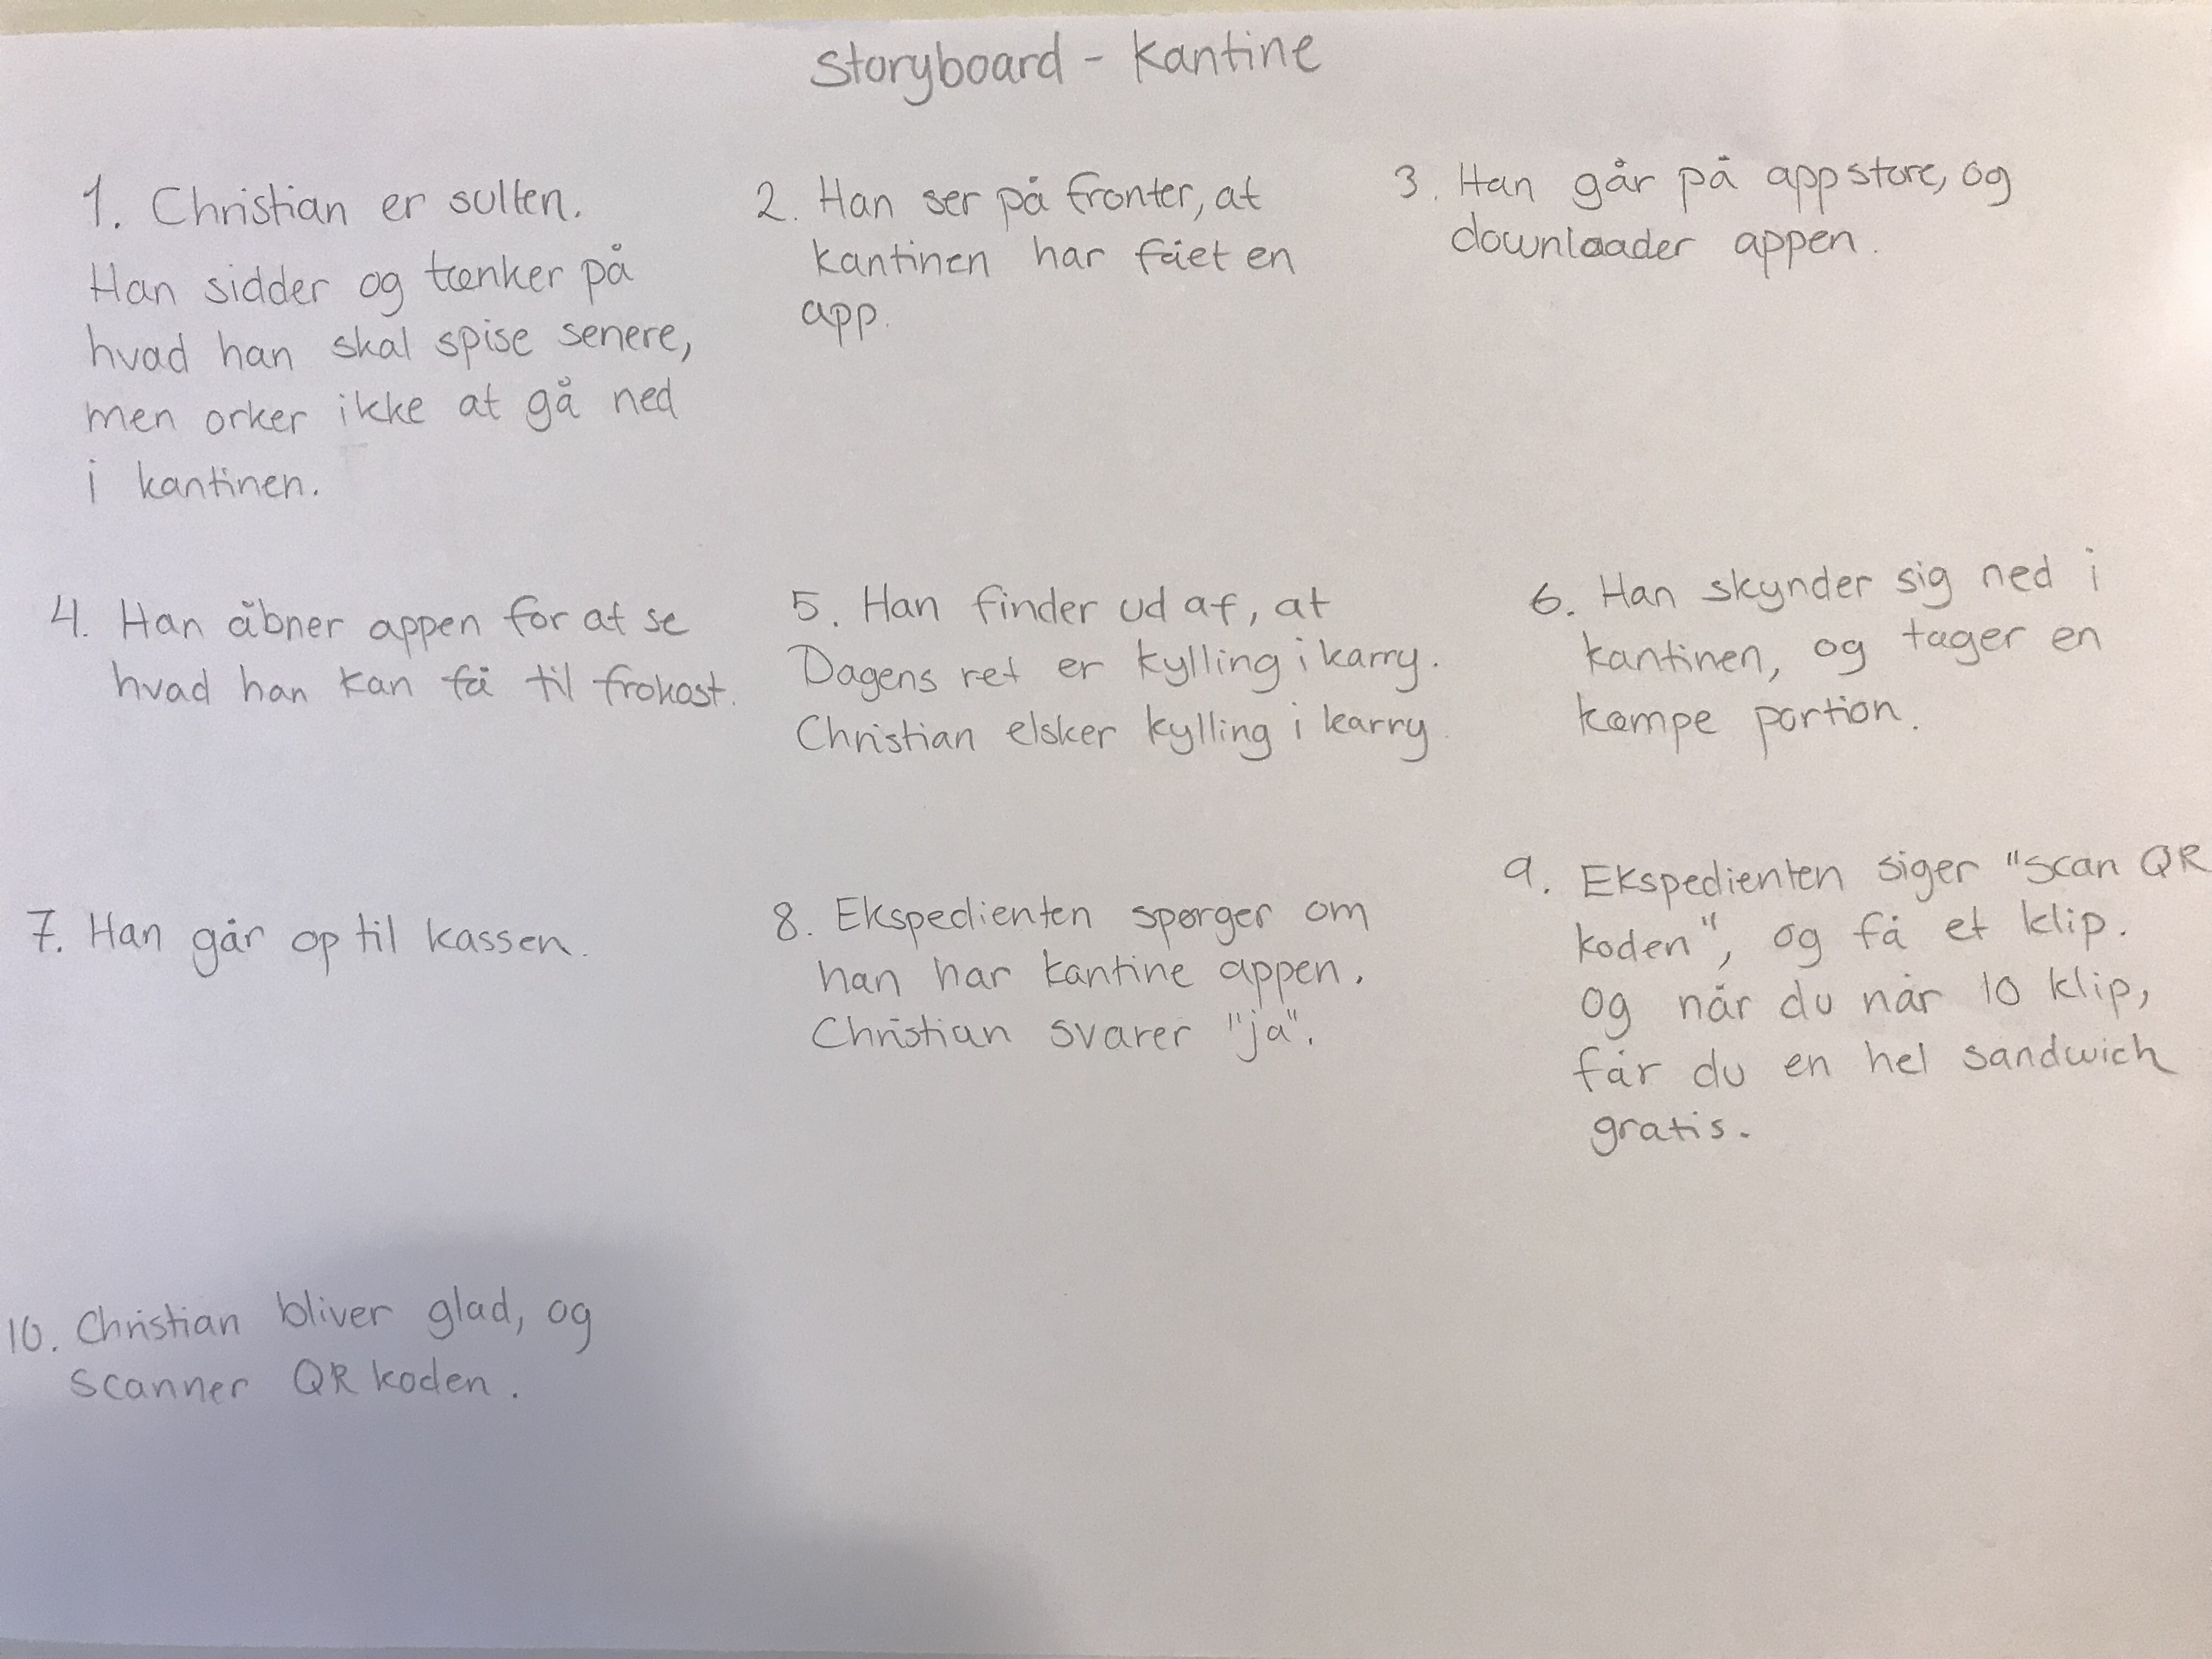 Storyboard - Kantine
1. Christian er sulten.
Han sidder og tænker på
hvad han skal spise senere,
men orker ikke at gå ned
i kantinen.
2. Han ser på fronter, at
kantinen har fået en
app.
3. Han går på appstore, og
downloader appen.
4. Han åbner appen for at se
hvad han kan få til frokost.
5. Han finder ud af, at
Dagens ret er kylling i karry.
Christian elsker kylling i karry
6. Han skynder sig ned i
kantinen, og tager en
kæmpe portion.
7. Han går op til kassen.
8. Ekspedienten spørger om
han har kantine appen.
Christian svarer "ja".
9. Ekspedienten siger "scan QR
koden", og få et klip.
og når du når 10 klip,
får du en hel sandwich
gratis.
10. Christian bliver glad, og
scanner QR koden.